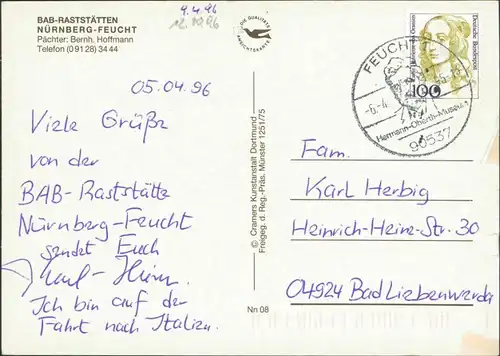 BAB-RASTSTÄTTEN
NÜRNBERG-FEUCHT
Pächter: Bernh. Hoffmann
Telefon (09128) 3444
9.4.96
12.10.96
DIE QUALITÄTS
ANSICHTSKARTE
05.04.96
Viele Grüße
von der
BAB-Raststätte
Nürnberg-Feucht
sendet Euch
Karl-Heinz.
Ich bin auf der
Fahrt nach Italien.
© Cramers Kunstanstalt Dortmund
Freigeg. d. Reg.-Präs. Münster 1251/75
Nn 08
Deutsche Bundespost
100
FEUCHT
-6.-4.
Hermann-Oberth-Museum
90537
Fam.
Karl Herbig
Heinrich-Heine-Str. 30
04924 Bad Liebenwerda